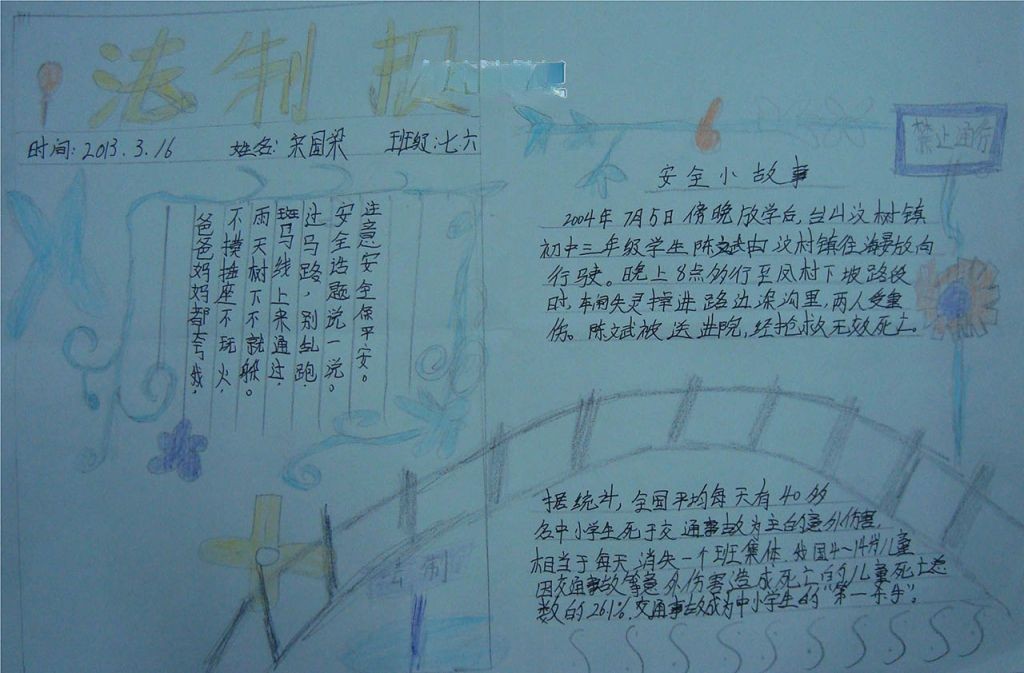 法制报
时间:2013.3.16 姓名:宋国梁 班级:七六
注意安全保平安。
安全话题说一说。
过马路,别乱跑,
斑马线上来通过,
雨天树下不就躲。
不摸插座不玩火,
爸爸妈妈都夸我.
禁止通行
安全小故事
2004年7月5日傍晚放学后,台山汶村镇
初中三年级学生陈文武由汶村镇往海晏放向
行驶。晚上8点多行至凤村下坡路段
时,车闸失灵掉进路边深沟里,两人受重
伤。陈文武被送进院,经抢救无效死亡。
据统计,全国平均每天有40多
名中小学生死于交通事故为主的意外伤害,
相当于每天消失一个班集体.我国4~14岁儿童
因交通事故等意外伤害造成死亡的儿童死亡总
数的26.1%.交通事故成为中小学生的"第一杀手".
法制